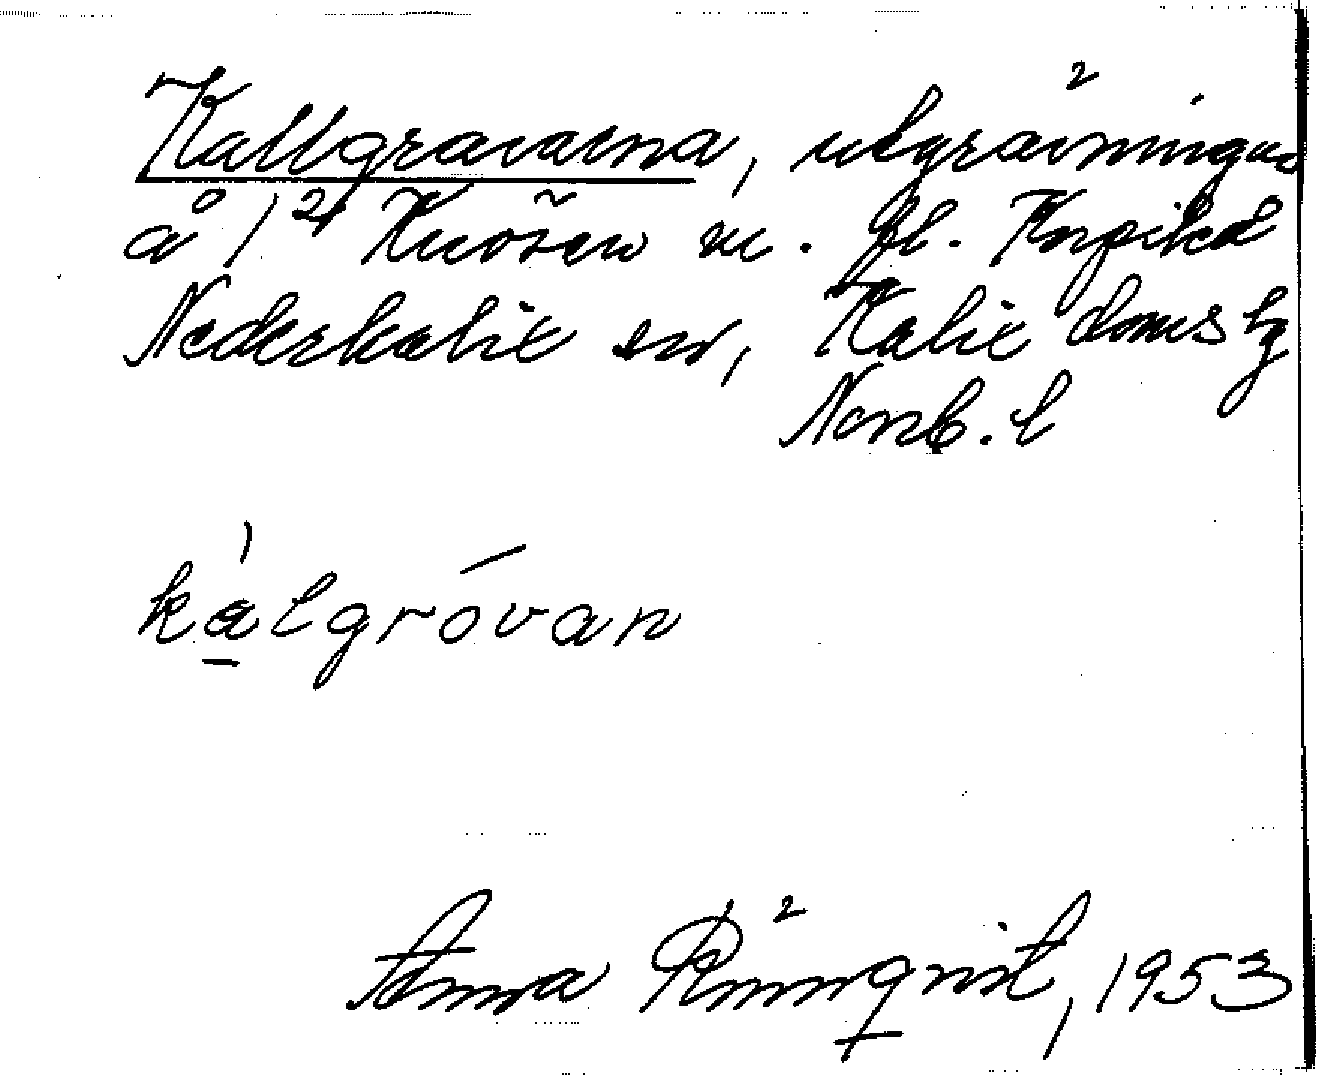 Kallgravarna, utgrävningar
å 1/24 Kuosen m. fl. Korpikå
Nederkalix sn, Kalix doms lg
Norrb. l
kalgróvan
Anna Rönnqvist, 1953